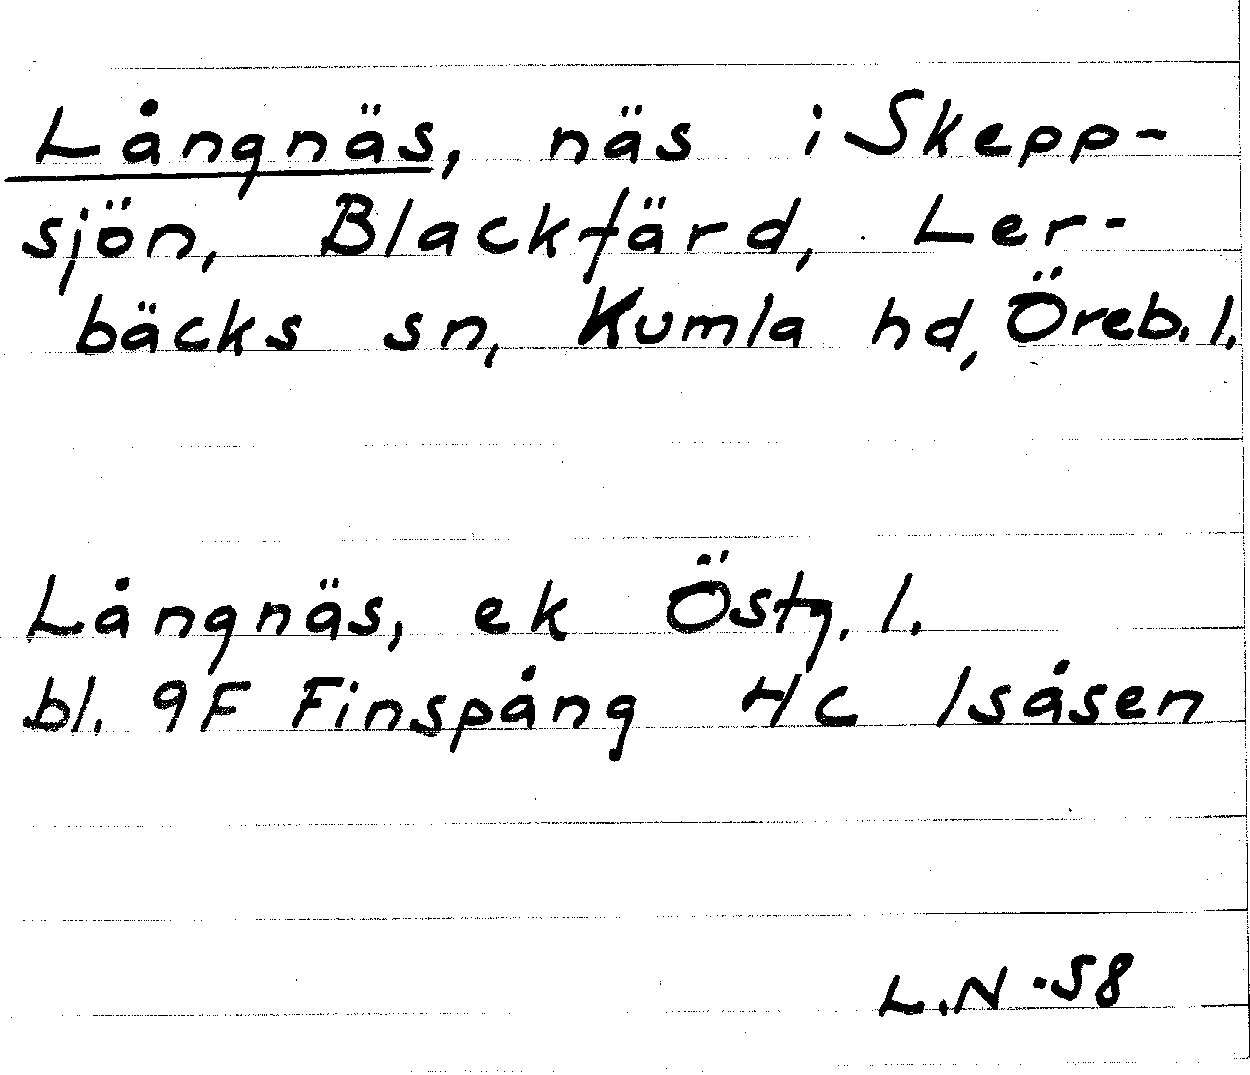 Långnäs, näs i Skepp-
sjön, Blackfärd, Ler-
bäcks sn, Kumla hd, Öreb. l.
Långnäs, ek Östg. l.
bl. 9F Finspång 4c Isåsen
L.N -58